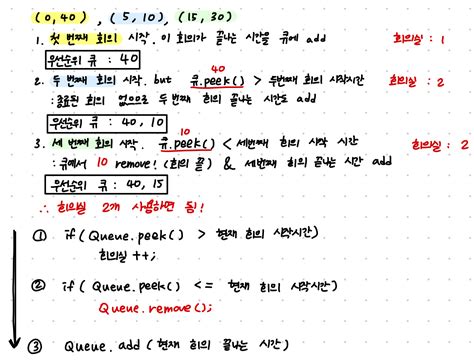 (0,40), (5,10), (15,30)
1. 첫 번째 회의 시작. 이 회의가 끝나는 시간을 큐에 add 회의실 : 1
우선순위 큐 : 40
40
2. 두 번째 회의 시작. but 큐.peek() > 두번째 회의 시작시간 회의실 : 2
: 종료된 회의 없으므로 두 번째 회의 끝나는 시간도 add
우선순위 큐 : 40, 10
10
3. 세 번째 회의 시작. 큐.peek() < 세번째 회의 시작 시간 회의실 : 2
: 큐에서 10 remove! (회의 끝) & 세번째 회의 끝나는 시간 add
우선순위 큐 : 40, 15
∴ 회의실 2개 사용하면 됨!
① if(Queue.peek() > 현재 회의 시작시간)
회의실 ++;
② if(Queue.peek() <= 현재 회의 시작시간)
Queue.remove();
③ Queue.add(현재 회의 끝나는 시간)